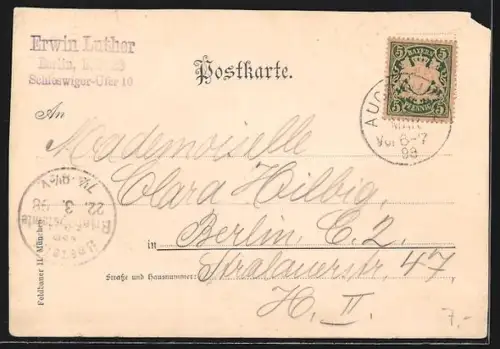 Erwin Luther
Berlin,
Schleswiger-Ufer 10
Postkarte.
5 BAYERN 5
5 PFENNIG 5
AUG
MÄR
Vor 6-7
98
An
Mademoiselle
Clara Hilbig,
in Berlin C. 2.
Straße und Hausnummer: Stralauerstr. 47
H. II.
22. 3. 98
Feldbauer 11. München
7.-